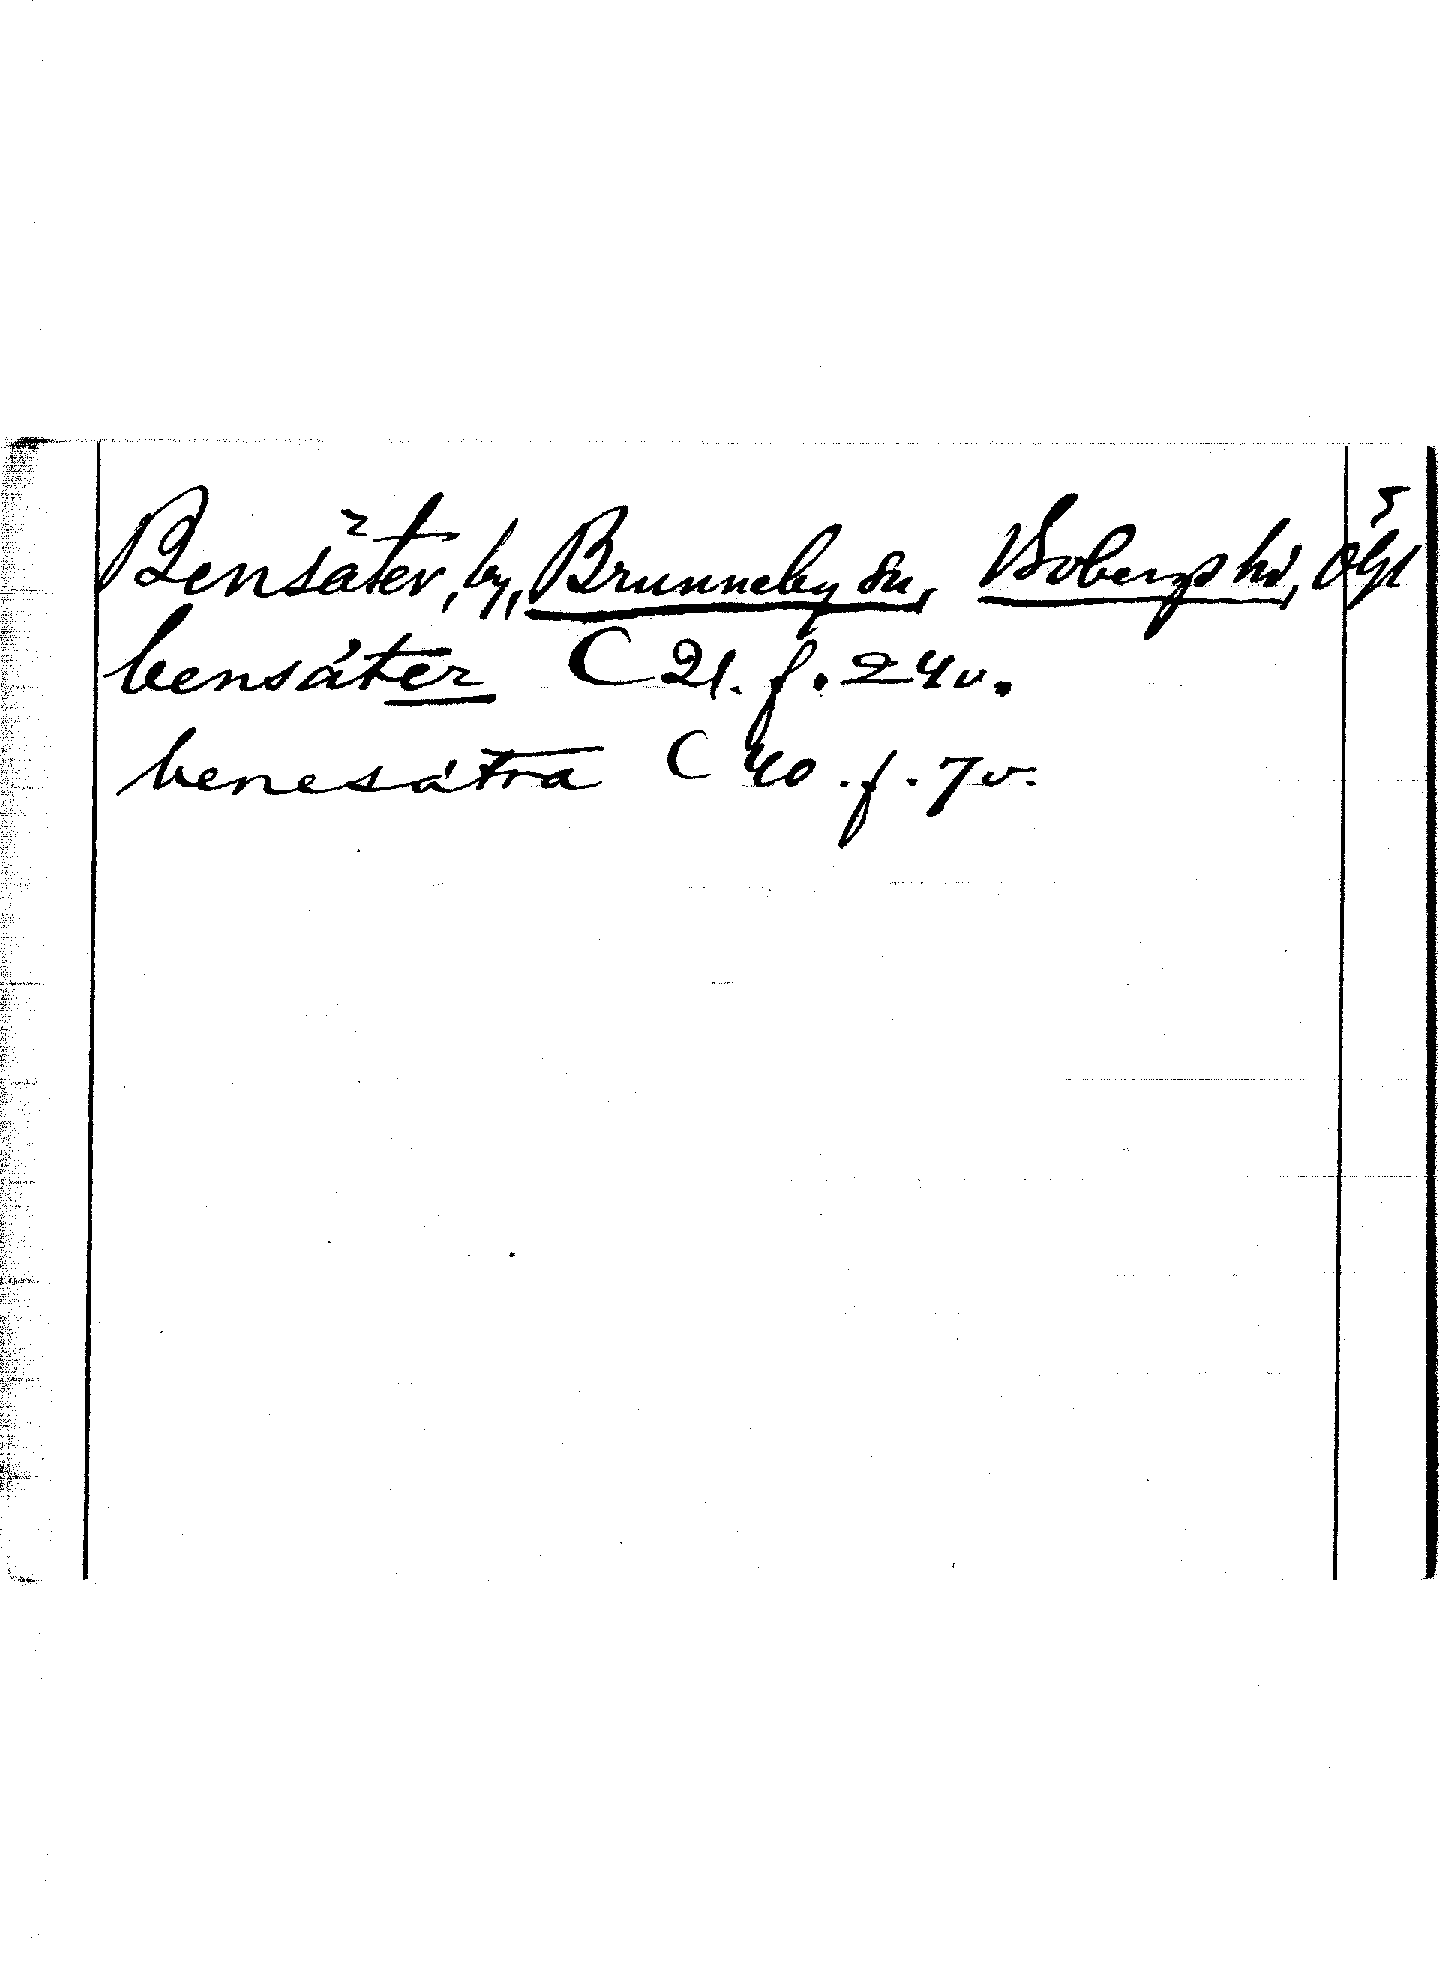 Bensäter, by, Brunneby sn, Bobergs hd, Ögl
bensäter C 21. f. 24v.
benesätra C 40. f. 7v.